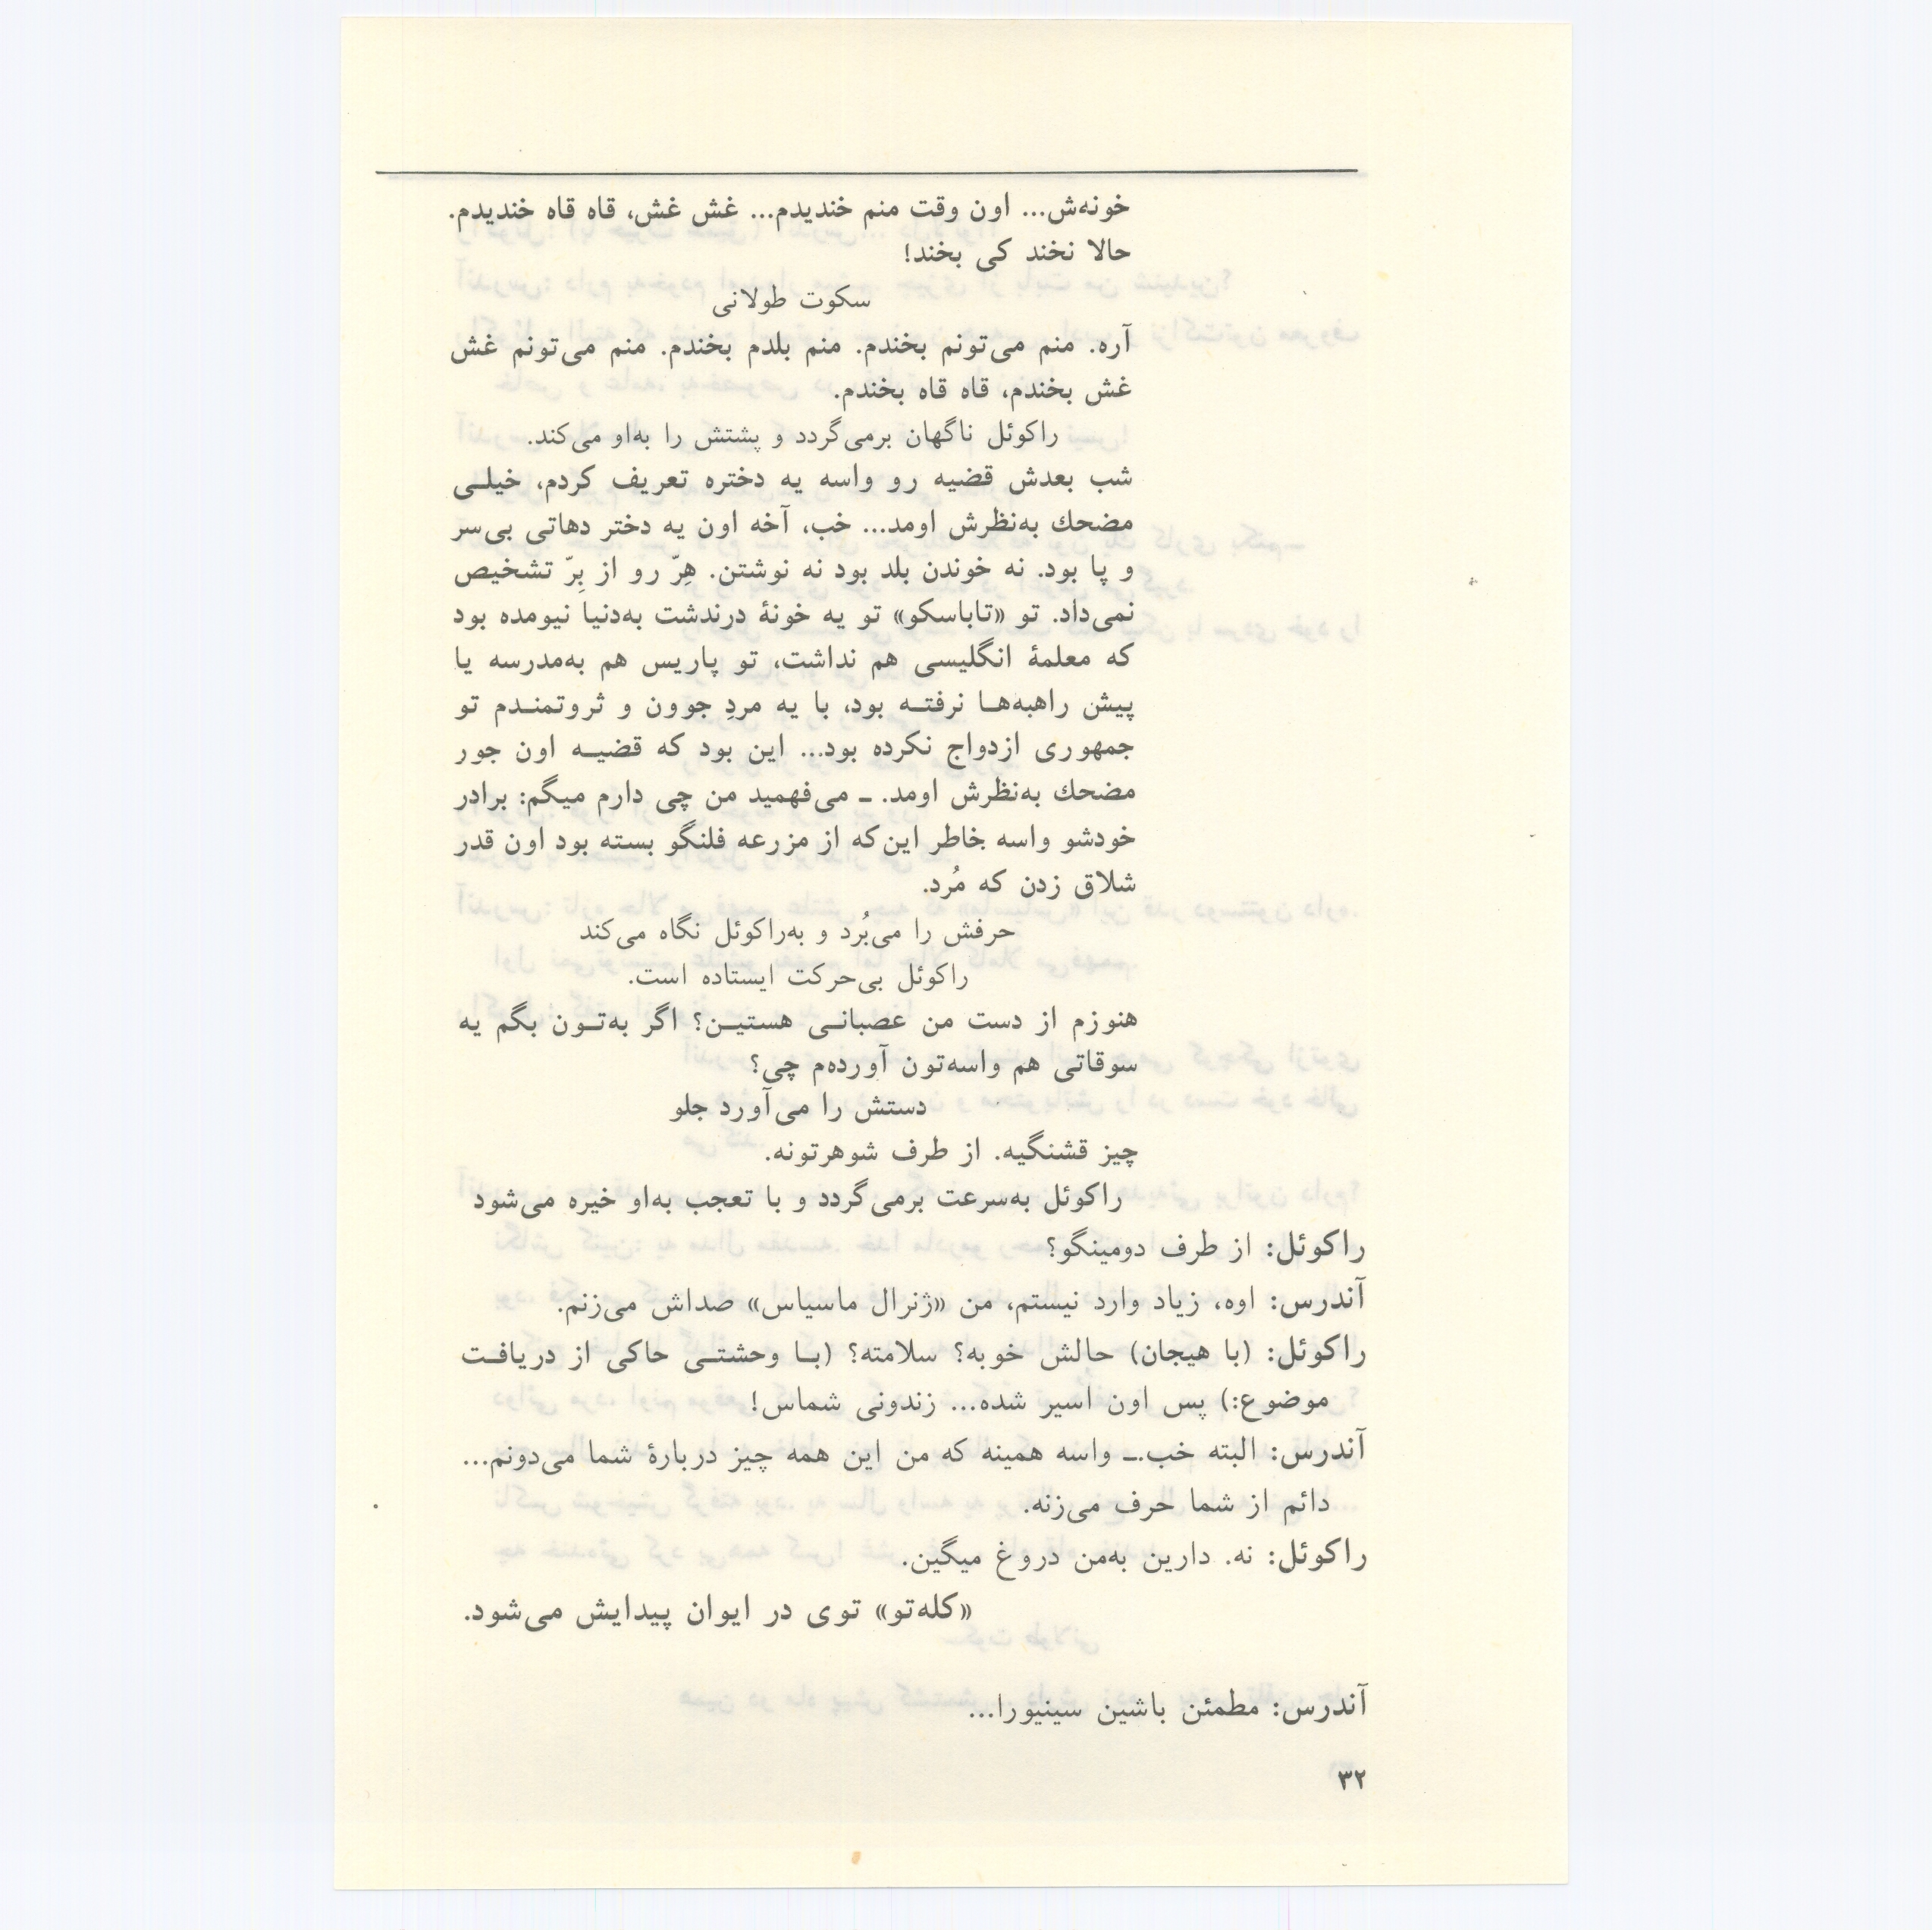 خونه‌ش... اون وقت منم خندیدم... غش غش، قاه قاه خندیدم.
حالا نخند کی بخند!
سکوت طولانی
آره. منم می‌تونم بخندم. منم بلدم بخندم. منم می‌تونم غش
غش بخندم، قاه قاه بخندم.
راکوئل ناگهان برمی‌گردد و پشتش را به‌او می‌کند.
شب بعدش قضیه رو واسه یه دختره تعریف کردم، خیلـی
مضحك به‌نظرش اومد... خب، آخه اون یه دختر دهاتی بی‌سر
و پا بود. نه خوندن بلد بود نه نوشتن. هِرّ رو از بِرّ تشخیص
نمی‌داد. تو «تاباسکو» تو یه خونهٔ درندشت به‌دنیا نیومده بود
که معلمهٔ انگلیسی هم نداشت، تو پاریس هم به‌مدرسه یا
پیش راهبه‌هـا نرفتـه بود، با یه مردِ جوون و ثروتمنـدم تو
جمهوری ازدواج نکرده بود... این بود که قضیـه اون جور
مضحك به‌نظرش اومد. ـ می‌فهمید من چی دارم میگم: برادر
خودشو واسه خاطر این‌که از مزرعه فلنگو بسته بود اون قدر
شلاق زدن که مُرد.
حرفش را می‌بُرد و به‌راکوئل نگاه می‌کند
راکوئل بی‌حرکت ایستاده است.
هنوزم از دست من عصبانـی هستیـن؟ اگر به‌تـون بگم یه
سوقاتی هم واسه‌تون آورده‌م چی؟
دستش را می‌آورد جلو
چیز قشنگیه. از طرف شوهرتونه.
راکوئل به‌سرعت برمی‌گردد و با تعجب به‌او خیره می‌شود
راکوئل: از طرف دومینگو؟
آندرس: اوه، زیاد وارد نیستم، من «ژنرال ماسیاس» صداش می‌زنم.
راکوئل: (با هیجان) حالش خوبه؟ سلامته؟ (بـا وحشتـی حاکی از دریافـت
موضوع:) پس اون اسیر شده... زندونی شماس!
آندرس: البته خب.ـ واسه همینه که من این همه چیز دربارهٔ شما می‌دونم...
دائم از شما حرف می‌زنه.
راکوئل: نه. دارین به‌من دروغ میگین.
«کله‌تو» توی در ایوان پیدایش می‌شود.
آندرس: مطمئن باشین سینیورا...
۳۲